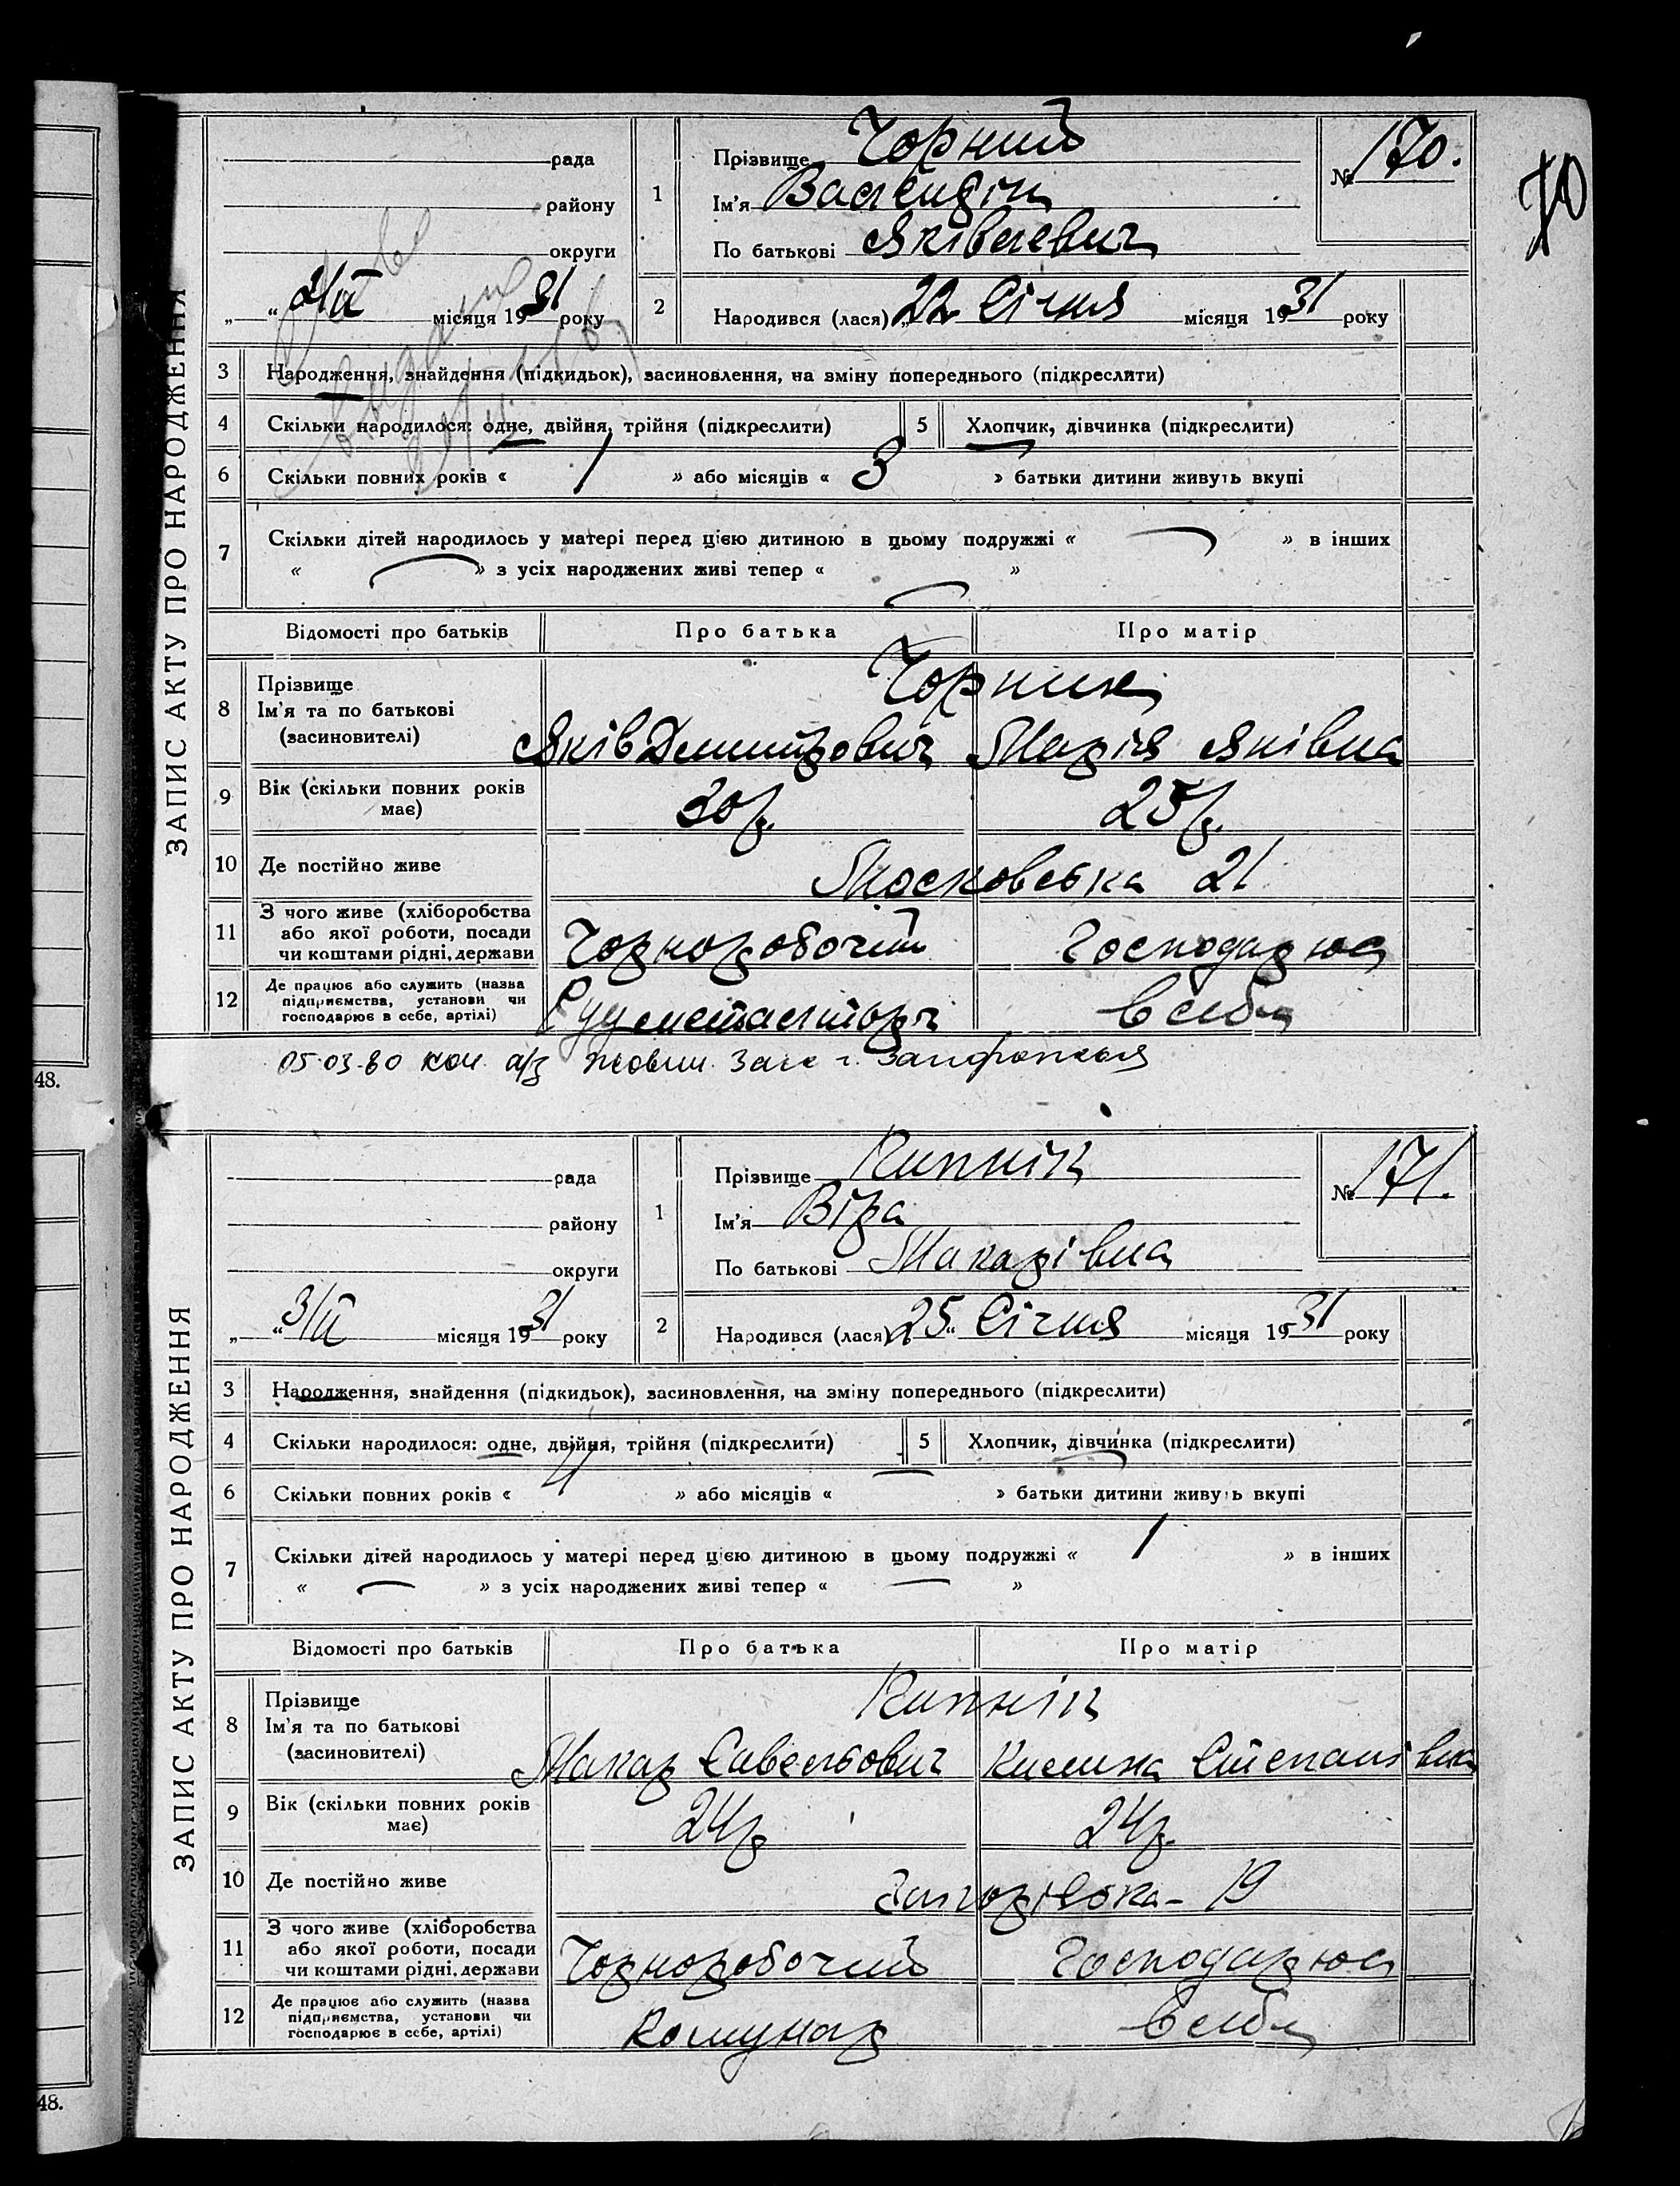 70
ЗАПИС АКТУ ПРО НАРОДЖЕННЯ
рада
району
округи
„ “ 2/II місяця 1931 року
1
Прізвище Чорний
Ім'я Валендін
По батькові Яківлевич
№ 170.
2
Народився (лася) „22 Січня місяця 1931 року
3 Народження, знайдення (підкидьок), засиновлення, на зміну попереднього (підкреслити)
4 Скільки народилося: одне, двійня, трійня (підкреслити)
5 Хлопчик, дівчинка (підкреслити)
6 Скільки повних років « 1 » або місяців « 3 » батьки дитини живуть вкупі
7 Скільки дітей народилось у матері перед цією дитиною в цьому подружжі « — » в інших
« — » з усіх народжених живі тепер « — »
Відомості про батьків Про батька Про матір
8 Прізвище
Ім'я та по батькові
(засиновителі)
Яків Дмитрович Марія Яківна
9 Вік (скільки повних років має) 30 р. 25 р.
10 Де постійно живе Московська 21
11 З чого живе (хліборобства
або якої роботи, посади
чи коштами рідні, держави
Чорноробочий Господарює
12 Де працює або служить (назва
підприємства, установи чи
господарює в себе, артілі)
в себе
05.03.80
48.
ЗАПИС АКТУ ПРО НАРОДЖЕННЯ
рада
району
округи
„ “ 3/II місяця 1931 року
1
Прізвище Кипнік
Ім'я Віра
По батькові Макарівна
№ 171.
2
Народився (лася) 25 “ Січня місяця 1931 року
3 Народження, знайдення (підкидьок), засиновлення, на зміну попереднього (підкреслити)
4 Скільки народилося: одне, двійня, трійня (підкреслити)
5 Хлопчик, дівчинка (підкреслити)
6 Скільки повних років « 4 » або місяців « — » батьки дитини живуть вкупі
7 Скільки дітей народилось у матері перед цією дитиною в цьому подружжі « 1 » в інших
« — » з усіх народжених живі тепер « — »
Відомості про батьків Про батька Про матір
8 Прізвище
Ім'я та по батькові
(засиновителі)
Кипнік
Макар Савельович Степанівна
9 Вік (скільки повних років має) 24 р. 24 р.
10 Де постійно живе 19
11 З чого живе (хліборобства
або якої роботи, посади
чи коштами рідні, держави
Чорноробочий Господарює
12 Де працює або служить (назва
підприємства, установи чи
господарює в себе, артілі)
Комунар в себе
48.